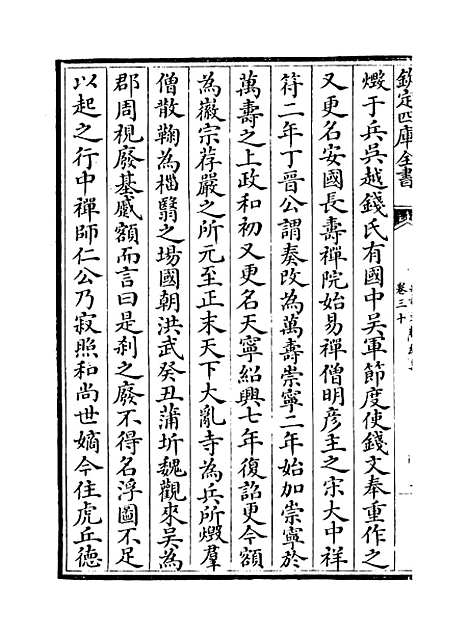 欽定四庫全書
卷三十
燬于兵吳越錢氏有國中吳軍節度使錢文奉重作之
又更名安國長壽禪院始易禪僧明彥主之宋大中祥
符二年丁晉公謂奏改為萬壽崇寧二年始加崇寧於
萬壽之上政和初又更名天寧紹興七年復詔更今額
為徽宗荐嚴之所元至正末天下大亂寺為兵所燬羣
僧散鞠為榛翳之場國朝洪武癸丑蒲圻魏觀來吳為
郡周視廢基慼額而言曰是刹之廢不得名浮圖不足
以起之行中禪師仁公乃寂照和尚世嫡今住虎丘德